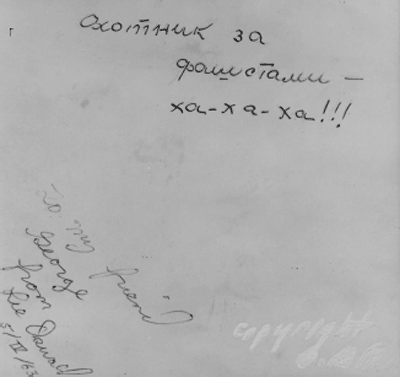 Охотник за
фашистами —
ха-ха-ха!!!
To my friend
George
from
Lee Oswald
5/IV/63
copyright